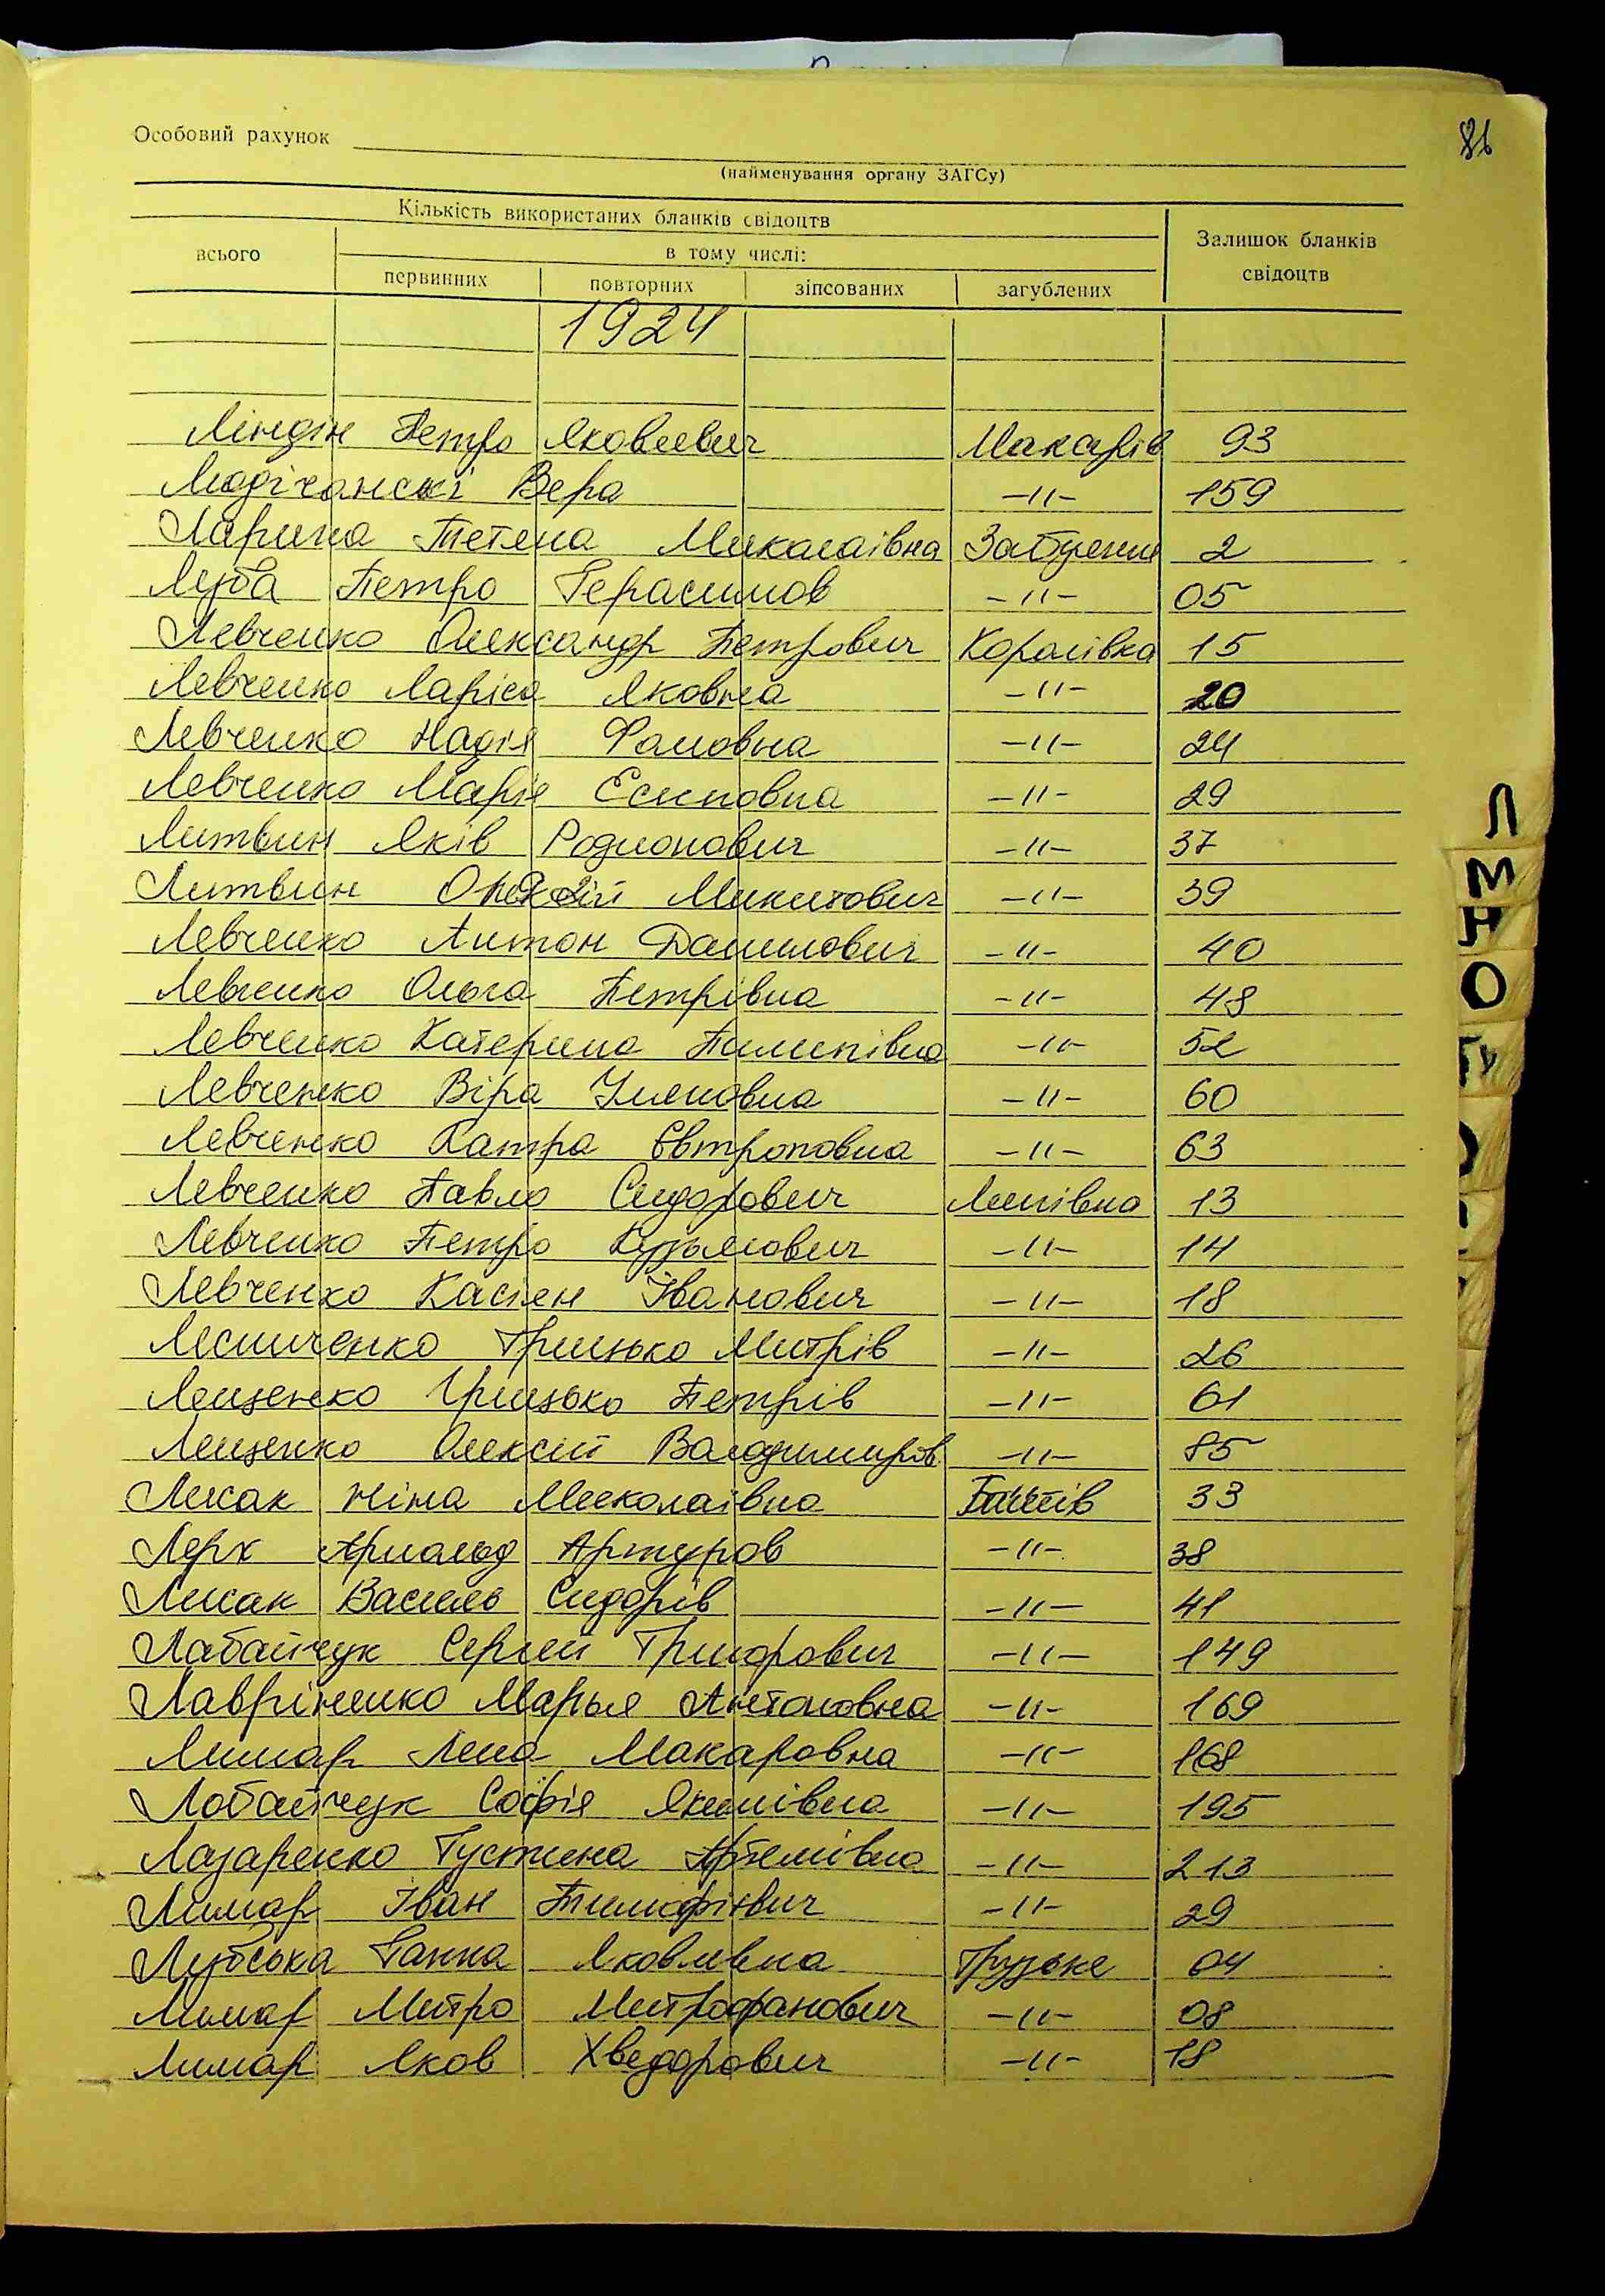 86
Особовий рахунок
(найменування органу ЗАГСу)
Кількість використаних бланків свідоцтв
Залишок бланків свідоцтв
всього
в тому числі:
первинних повторних зіпсованих загублених
1924
Ліндін Петро Яковлевич Макарів 93
Людічанскі Вера -11- 159
Ларина Тетяна Миколаївна 2
Луба Петро Герасимов -11- 05
Левченко Олександр Петрович Королівка 15
Левченко Ларіса Яковна -11- 20
Левченко Надія -11- 24
Левченко Марія Есиповна -11- 29
Литвин Яків Родионович -11- 37
Литвин Микитович -11- 39
Левченко Антон Данилович -11- 40
Левченко Ольга Петрівна -11- 48
Левченко Катерина Пилипівна -11- 52
Левченко Віра Уляновна -11- 60
Левченко Катра Євтроповна -11- 63
Левченко Павло Сидорович 13
Левченко Петро Кузьмович -11- 14
Левченко Касіян Іванович -11- 18
Лесниченко Грицько Митрів -11- 26
Лещенко Грицько Петрів -11- 61
Лещенко Олексій Володимиров. -11- 85
Лисак Ніна Миколаївна 33
Лерх Арнольд Артуров -11- 38
Лисак Василь Сидорів -11- 41
Лабайчук Сергій Григорович -11- 149
Лавріненко Марья Антоновна -11- 169
Лимар Лена Макаровна -11- 168
Лобайчук Софія Якимівна -11- 195
Лазаренко Густина Артемівна -11- 213
Лимар Іван Тимофієвич -11- 29
Лубська Ганна Яковлевна Грузьке 04
Лимар Митро Митрофанович -11- 08
Лимар Яков Хведорович -11- 18
Л
М
Н
О